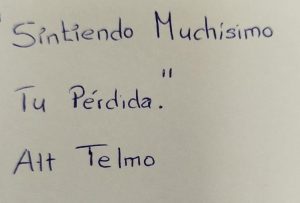 "Sintiendo Muchísimo
Tu Pérdida."
Att Telmo